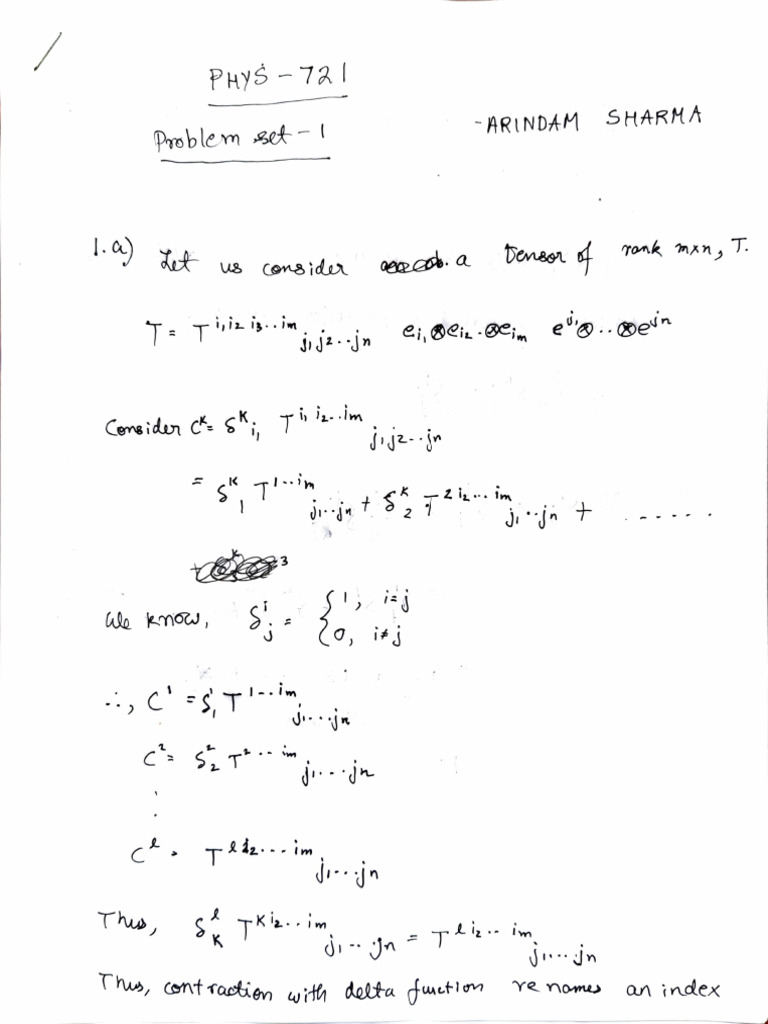 PHYS - 721
Problem set - 1
- ARINDAM SHARMA
1. a) Let us consider a tensor of rank m×n, T.
T = T^{i₁ i₂ i₃ .. im}_{j₁ j₂ .. jn} e_{i₁} ⊗ e_{i₂} .. ⊗ e_{im} e^{j₁} ⊗ .. ⊗ e^{jn}
Consider C^k = δ^k_{i₁} T^{i₁ i₂ .. im}_{j₁ j₂ .. jn}
= δ^k_1 T^{1 .. im}_{j₁ .. jn} + δ^k_2 T^{2 i₂ ... im}_{j₁ .. jn} + ......
We know, δ^i_j = { 1, i = j
0, i ≠ j
∴, C^1 = δ^1_1 T^{1 .. im}_{j₁ .... jn}
C^2 = δ^2_2 T^{2 .. im}_{j₁ ... jn}
⋮
C^l = T^{l i₂ ... im}_{j₁ ... jn}
Thus, δ^l_k T^{k i₂ .. im}_{j₁ .. jn} = T^{l i₂ .. im}_{j₁ ... jn}
Thus, contraction with delta function renames an index